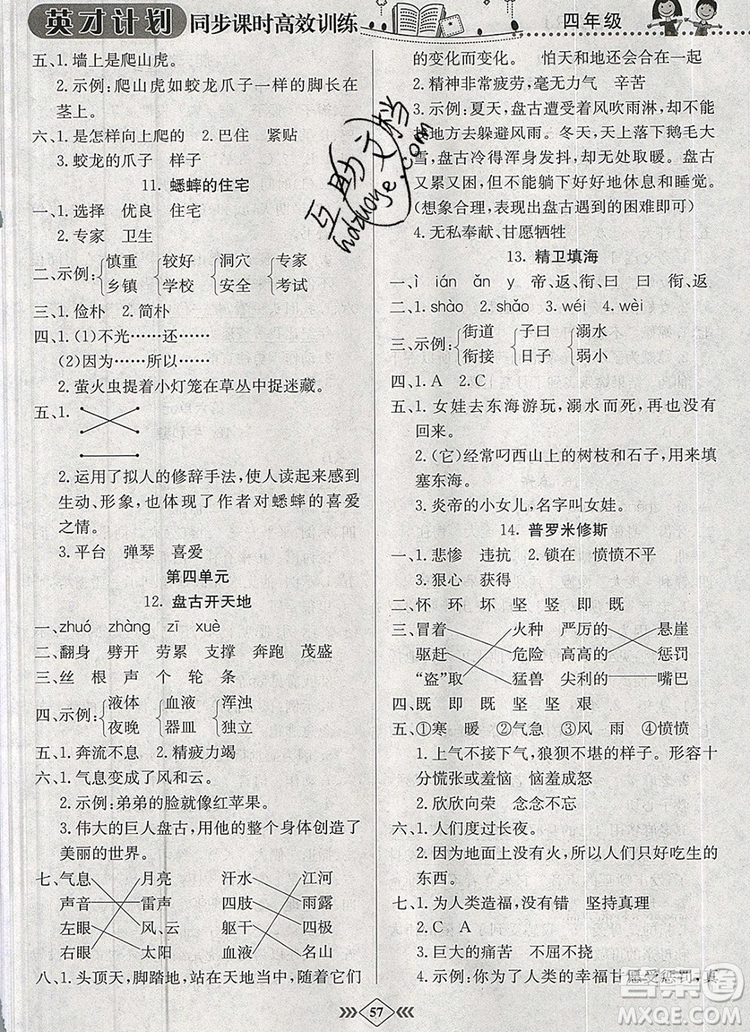 英才计划 同步课时高效训练
四年级
五、1. 墙上是爬山虎。
2. 示例:爬山虎如蛟龙爪子一样的脚长在
茎上。
六、1. 是怎样向上爬的 2. 巴住 紧贴
3. 蛟龙的爪子 样子
11. 蟋蟀的住宅
一、1. 选择 优良 住宅
2. 专家 卫生
二、示例: 慎重 较好 洞穴 专家
乡镇 学校 安全 考试
三、1. 俭朴 2. 简朴
四、1. (1)不光……还……
(2)因为……所以……
2. 萤火虫提着小灯笼在草丛中捉迷藏。
五、1.
2. 运用了拟人的修辞手法,使人读起来感到
生动、形象,也体现了作者对蟋蟀的喜爱
之情。
3. 平台 弹琴 喜爱
第四单元
12. 盘古开天地
一、zhuó zhàng zī xuè
二、翻身 劈开 劳累 支撑 奔跑 茂盛
三、丝 根 声 个 轮 条
四、示例: 液体 血液 浑浊
夜晚 器皿 独立
五、1. 奔流不息 2. 精疲力竭
六、1. 气息变成了风和云。
2. 示例:弟弟的脸就像红苹果。
3. 伟大的巨人盘古,用他的整个身体创造了
美丽的世界。
七、气息 月亮 汗水 江河
声音 雷声 四肢 雨露
左眼 风、云 躯干 四极
右眼 太阳 血液 名山
八、1. 头顶天,脚踏地,站在天地当中,随着它们
的变化而变化。 怕天和地还会合在一起
2. 精神非常疲劳,毫无力气 辛苦
3. 示例:夏天,盘古遭受着风吹雨淋,却没有
地方去躲避风雨。冬天,天上下着鹅毛大
雪,盘古冷得浑身发抖,却无处取暖。盘古
又累又困,但是却不能躺下休息和睡觉。
(想象合理,表现出盘古遇到的困难即可)
4. 无私奉献、甘愿牺牲
13. 精卫填海
一、ì ián ǎn y 帝、返、衔、曰 曰、衔、返
二、1. shào 2. shǎo 3. wéi 4. wèi
三、示例: 街道 子曰 溺水
衔接 日子 弱小
四、1. A 2. C
五、1. 女娃去东海游玩,溺水而死,再也没有
回来。
2. (它)经常叼西山上的树枝和石子,用来填
塞东海。
3. 炎帝的小女儿,名字叫女娃。
14. 普罗米修斯
一、1. 悲惨 违抗 2. 锁在 愤愤不平
3. 狠心 获得
二、怀 环 坏 坚 竖 即 既
三、冒着 火种 严厉的 悬崖
驱赶 危险 高高的 惩罚
“盗”取 猛兽 尖利的 嘴巴
四、既 即 既 坚 坚 艰
五、①寒 暖 ②气急 ③风 雨 ④愤愤
1. 上气不接下气,狼狈不堪的样子。形容十
分慌张或羞愧 恼羞成怒
2. 欣欣向荣 念念不忘
六、1. 人们度过长夜。
2. 因为地面上没有火,所以人们只好吃生的
东西。
七、1. 为人类造福,没有错 坚持真理
2. C A
3. 巨大的痛苦 不屈不挠
4. 示例:你为了人类的幸福甘愿受惩罚,真
57
互助文档
hdzuoye.com
作业帮
MXQE.COM